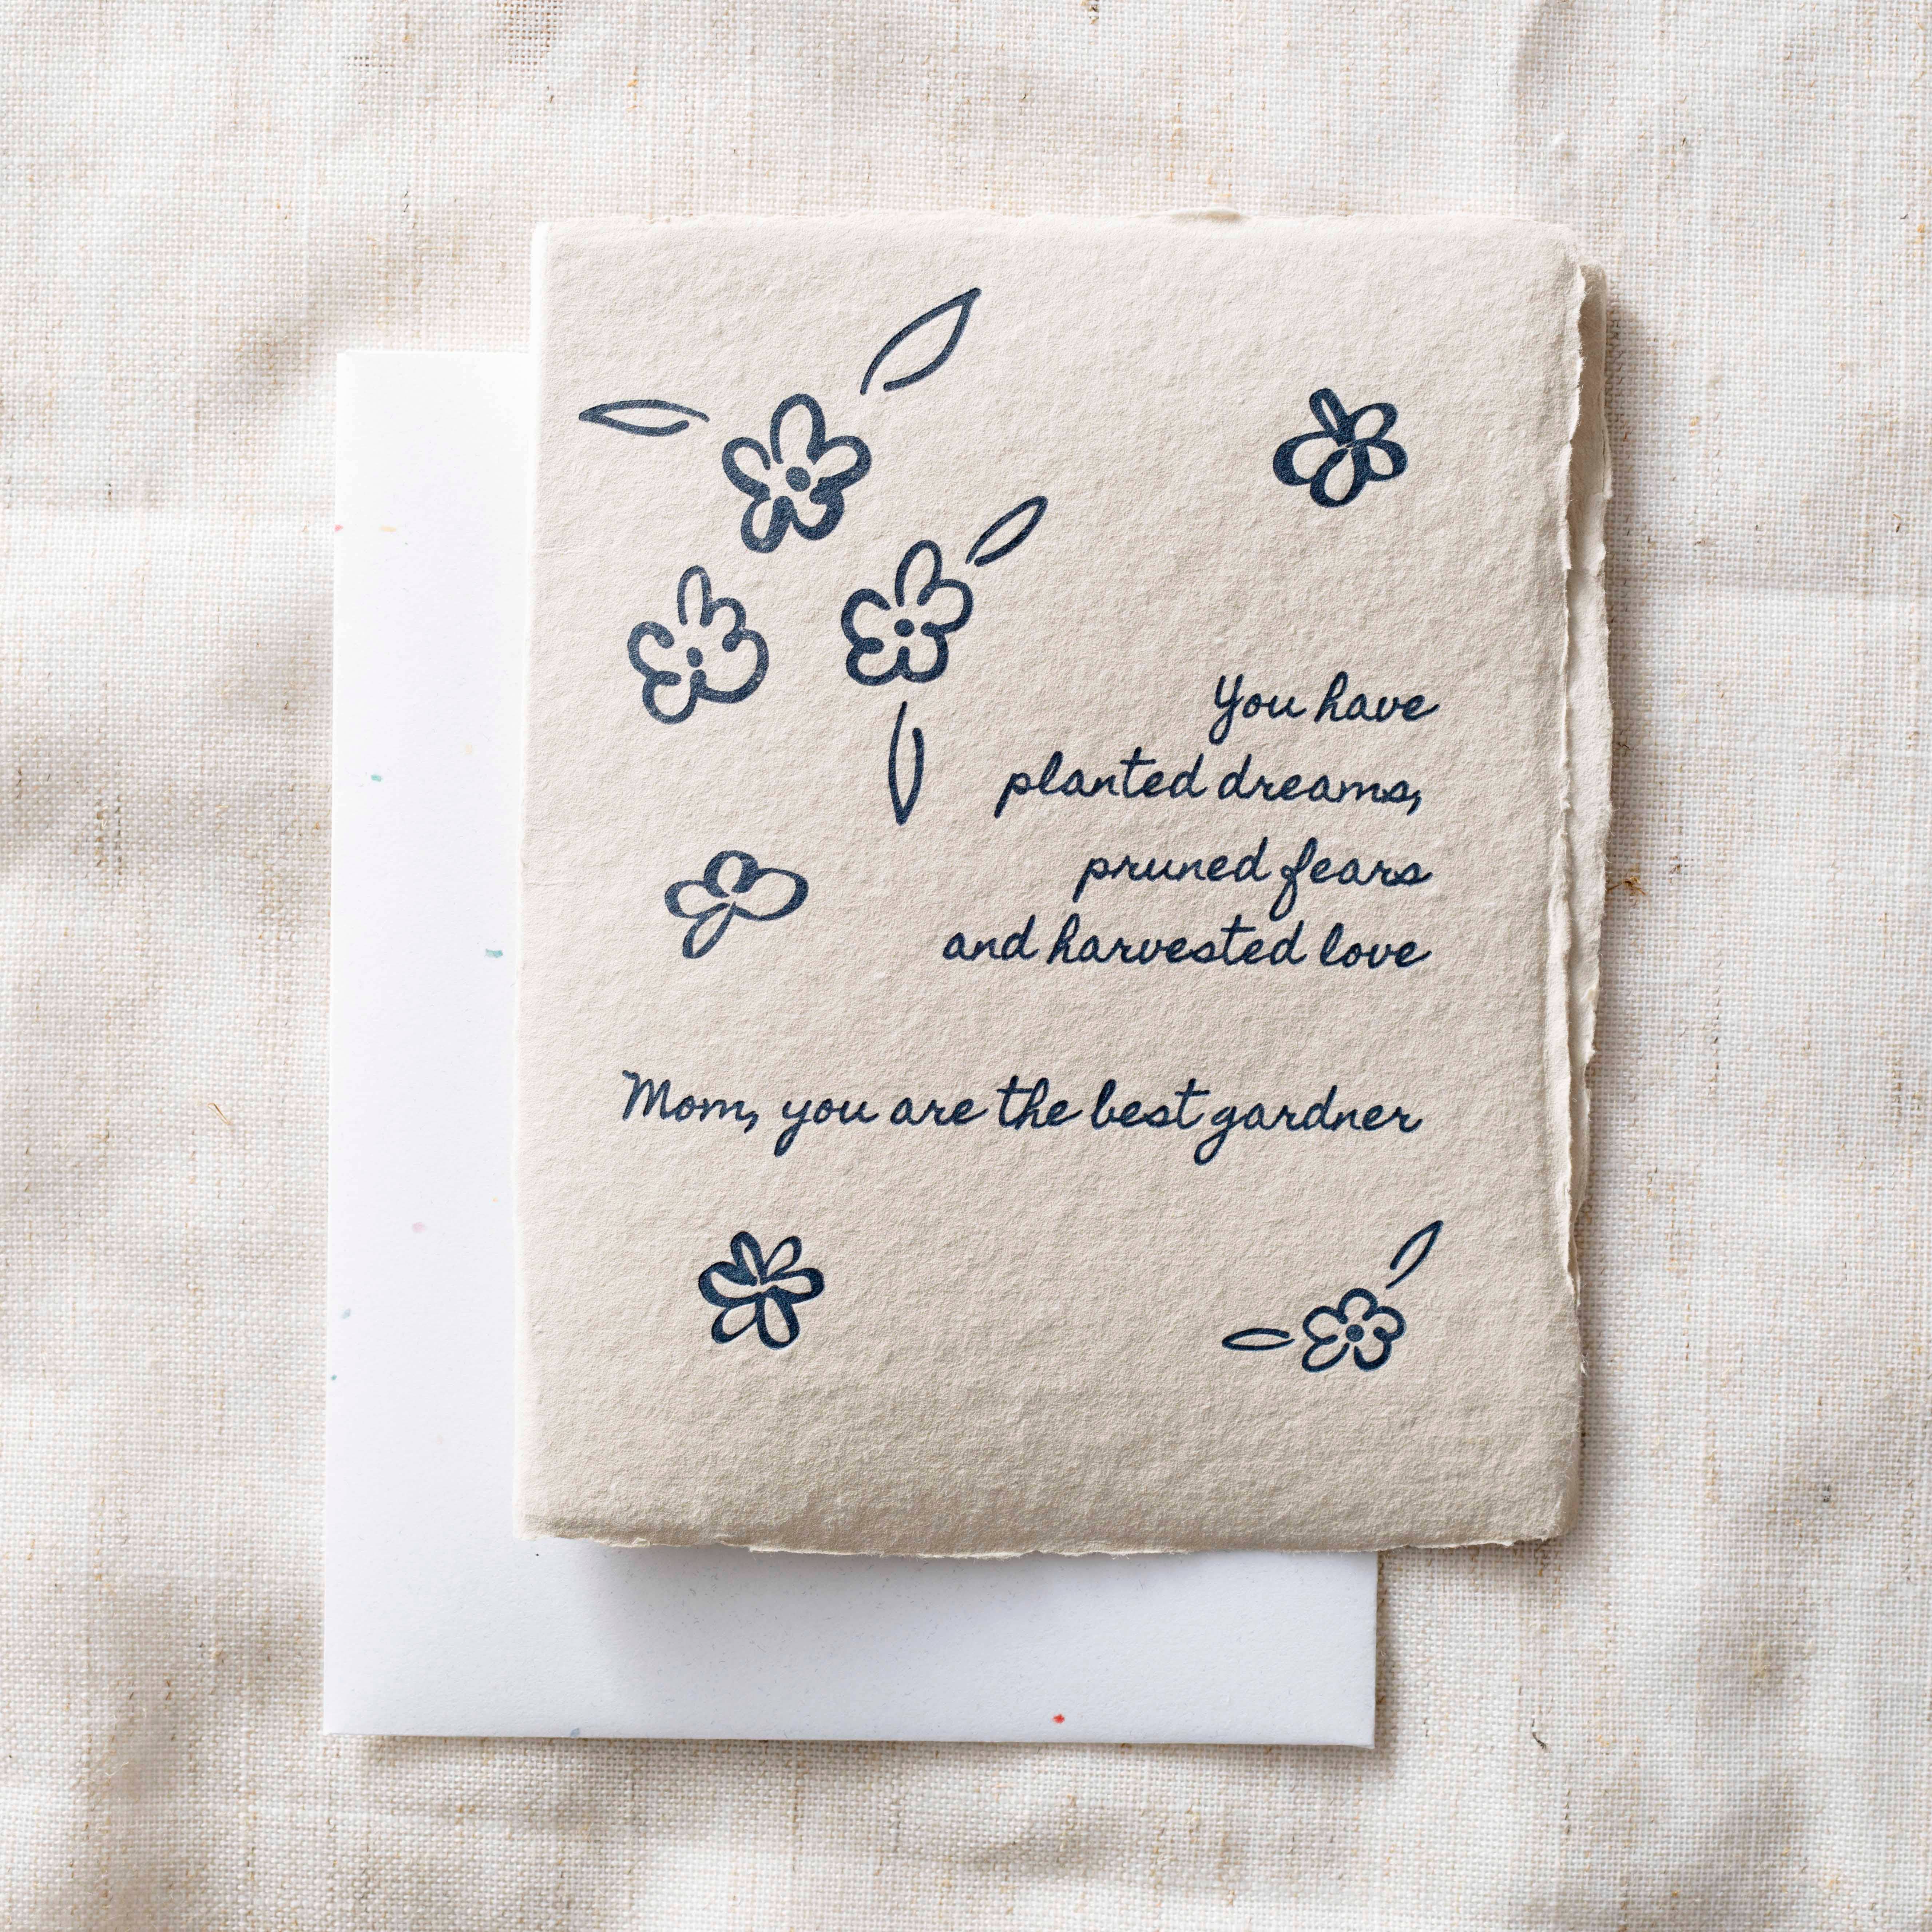 You have
planted dreams,
pruned fears
and harvested love
Mom, you are the best gardner